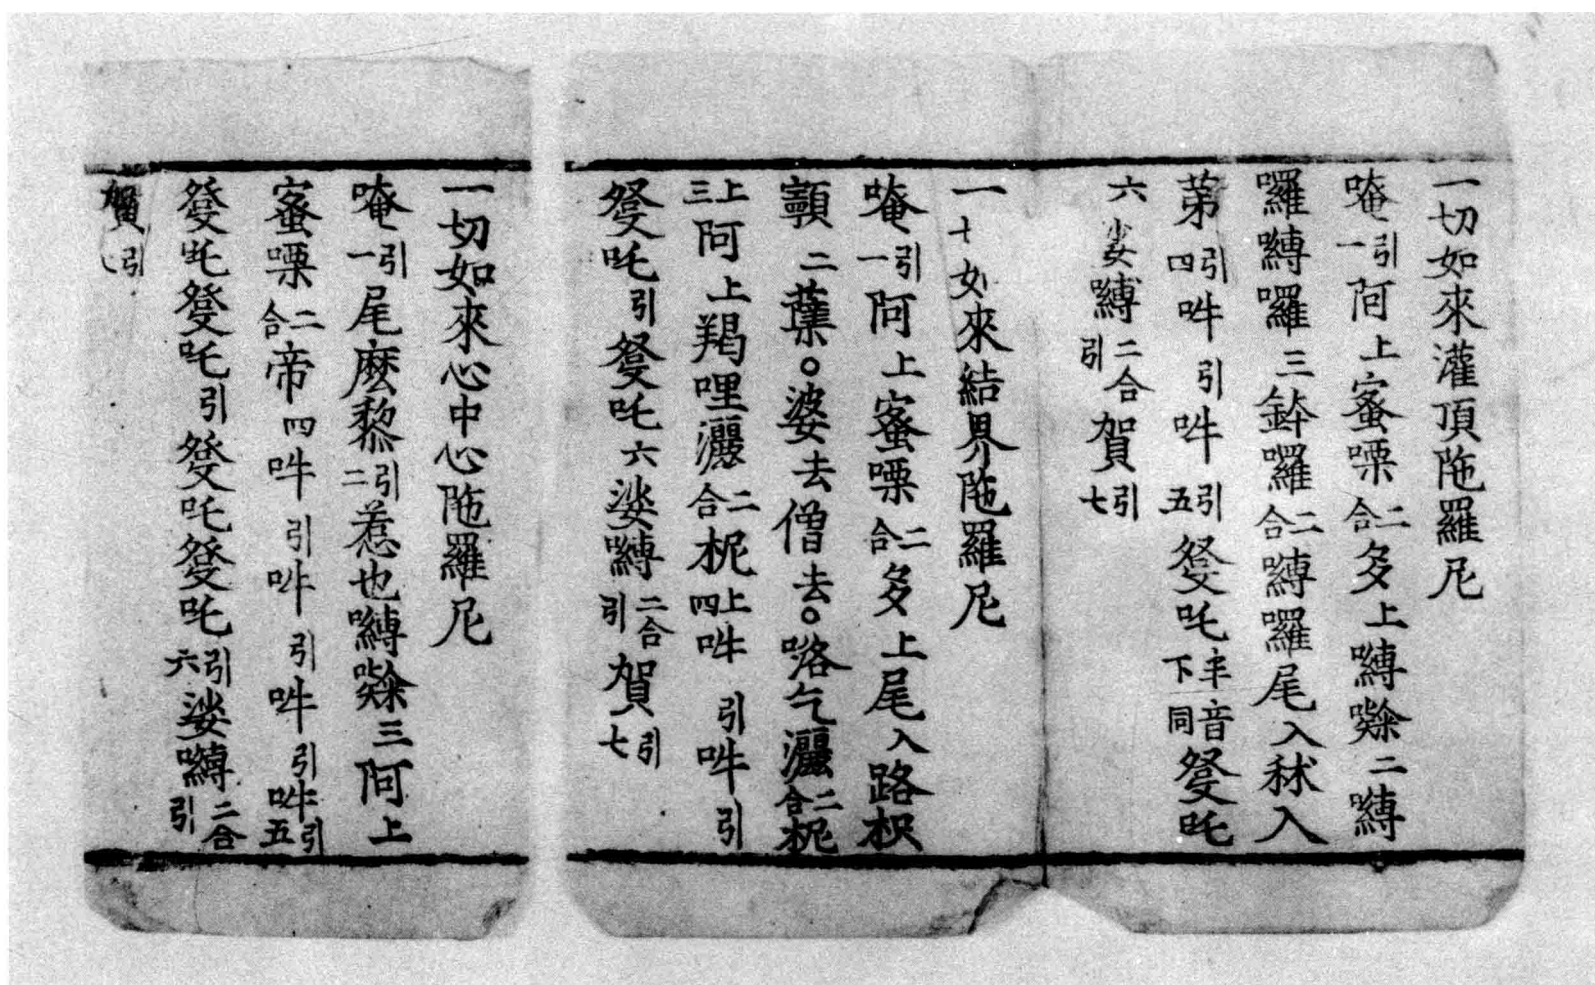 一切如來灌頂陁羅尼
唵引一阿上蜜㗚二合多上嚩㘑二嚩
囉嚩囉三鉢囉二合嚩囉尾入秫入
第引四吽引吽引五癹吒半音下同癹吒
六娑嚩二合引賀引七
一切如來結界陁羅尼
唵引一阿上蜜㗚二合多上尾入路枳
顫二蘖○婆去僧去○咯乞灑二合抳
上三阿上羯哩灑二合抳上四吽引吽引
癹吒引癹吒六娑嚩二合引賀引七
一切如來心中心陁羅尼
唵引一尾麽黎引二惹也嚩㘑三阿上
蜜㗚二合帝四吽引吽引吽引吽引五
癹吒癹吒引癹吒癹吒引六娑嚩二合引
賀引